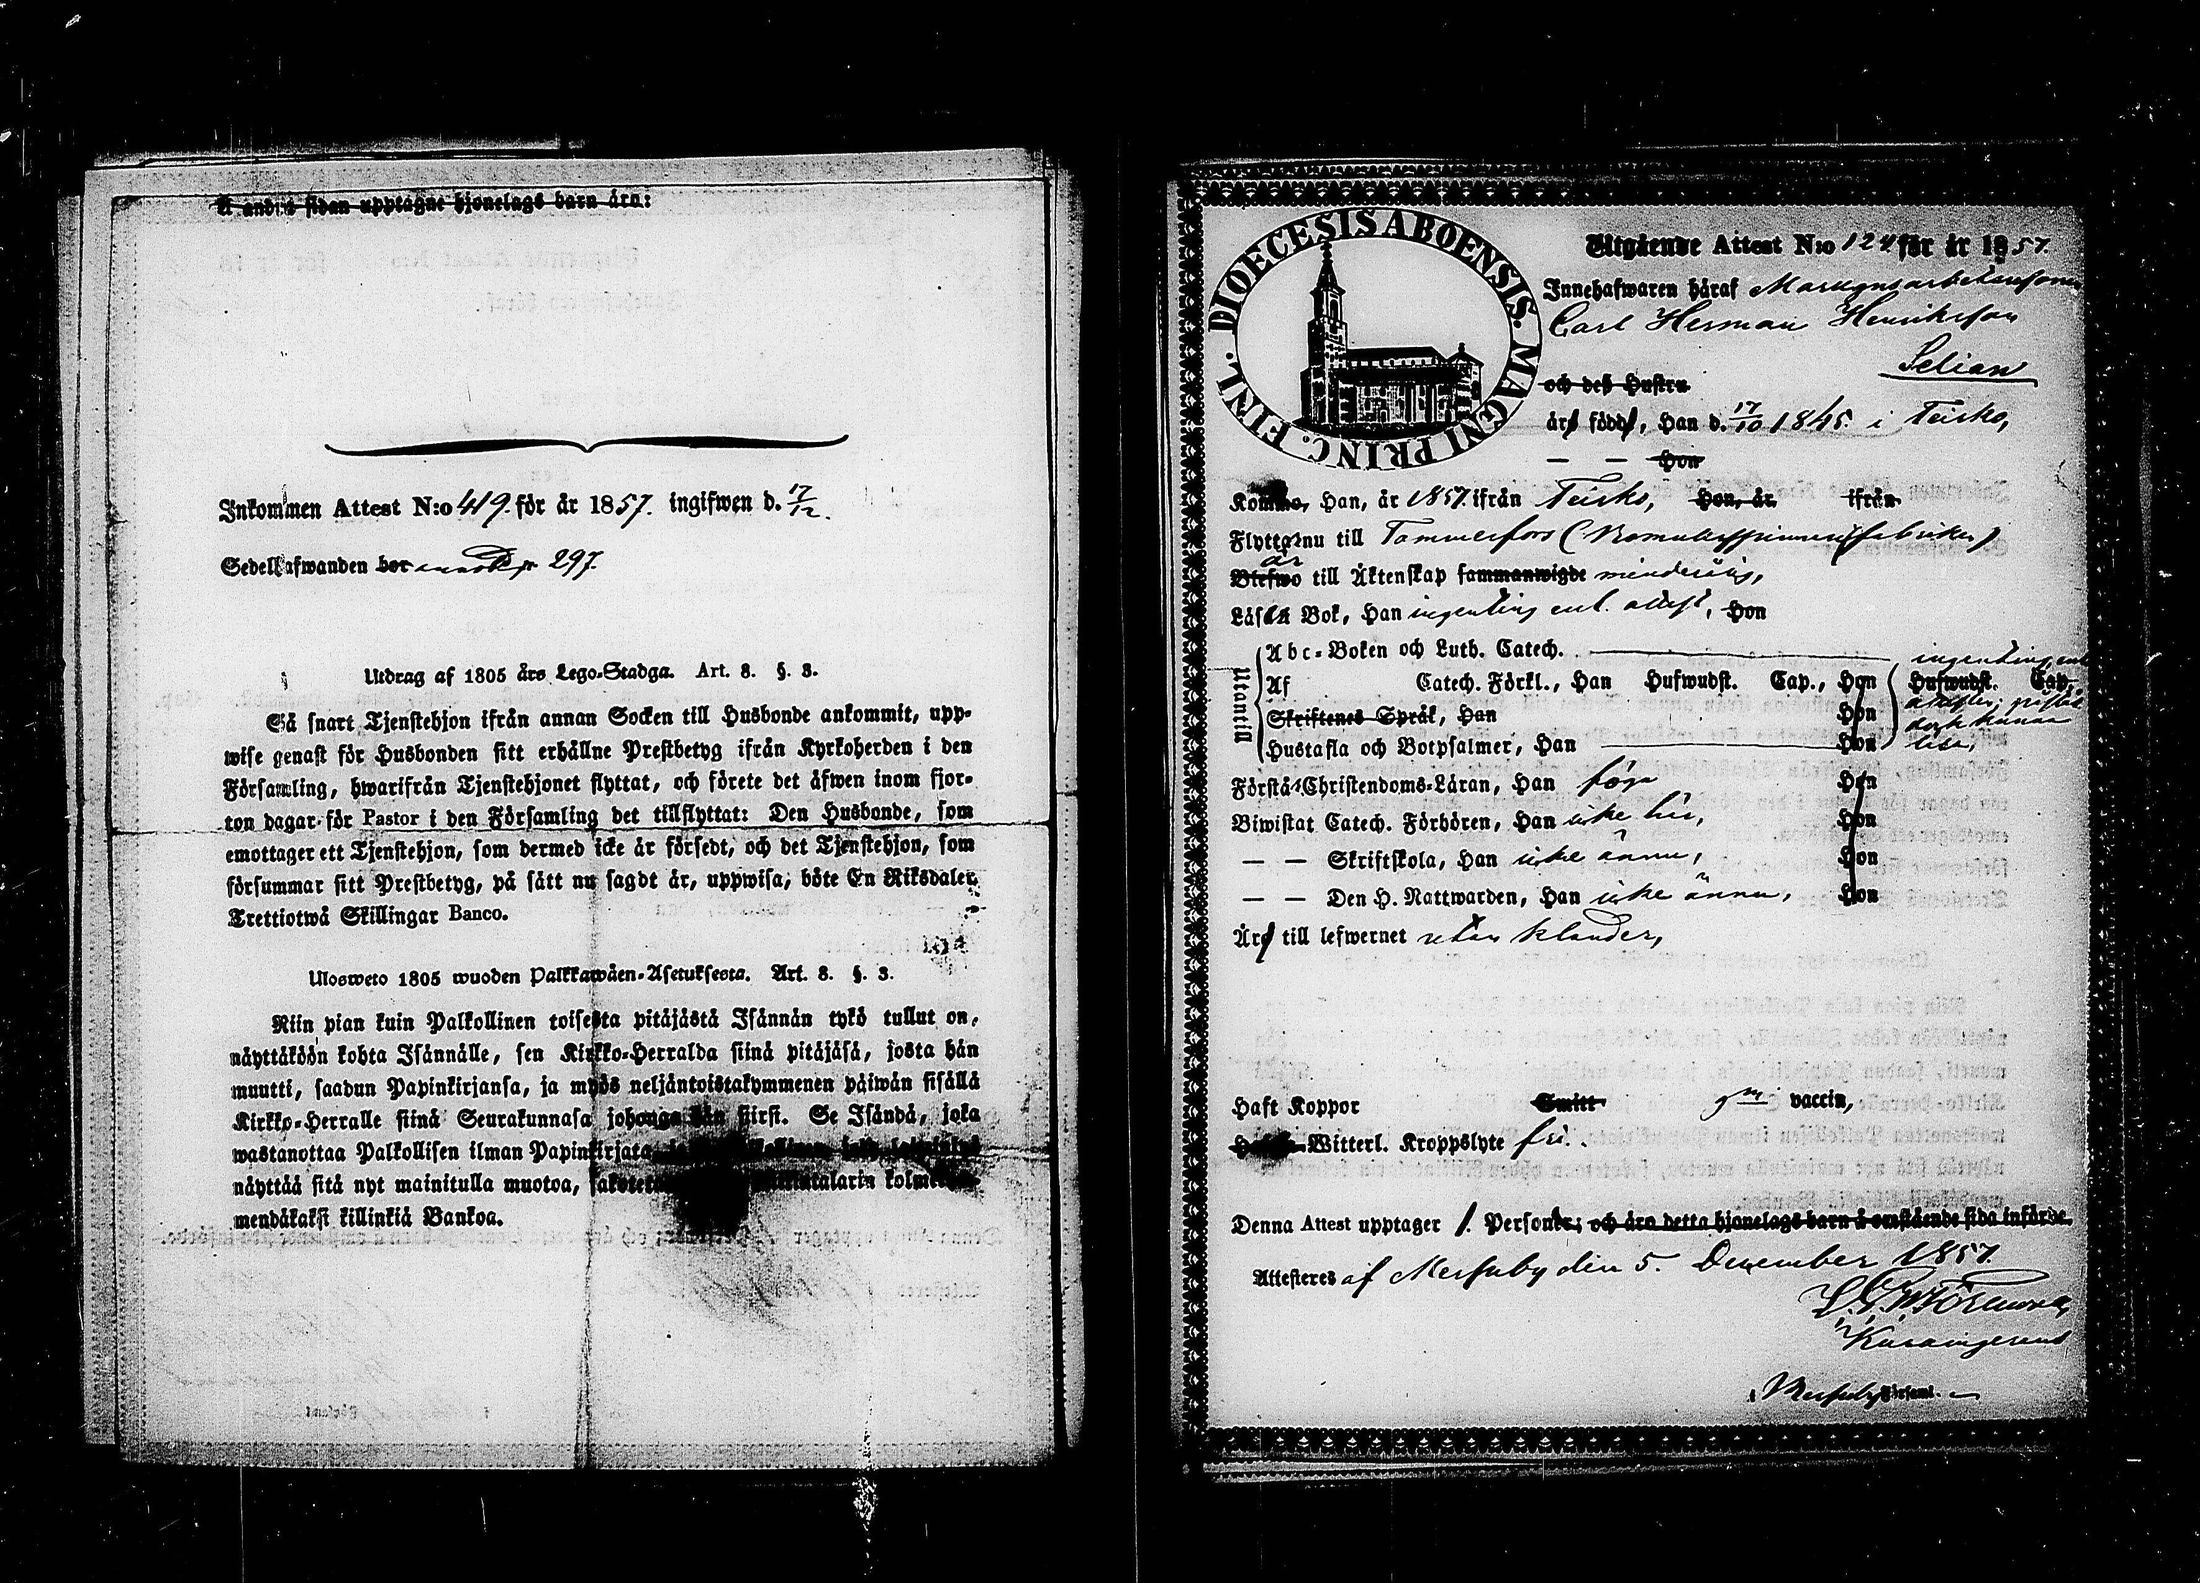 Å andra sidan upptagne hjonelags barn äro:
Inkommen Attest N:o 419. för år 1857. ingifwen d. 17/12.
Sedelafwanden bor 297.
Utdrag af 1805 års Lego-Stadga. Art. 8. §. 3.
Så snart Tjenstehjon ifrån annan Socken till Husbonde ankommit, upp-
wise genast för Husbonden sitt erhållne Prestbetyg ifrån Kyrkoherden i den
Församling, hwarifrån Tjenstehjonet flyttat, och förete det äfwen inom fjor-
ton dagar för Pastor i den Församling det tillflyttat: Den Husbonde, som
emottager ett Tjenstehjon, som dermed icke är försedt, och det Tjenstehjon, som
försummar sitt Prestbetyg, på sätt nu sagdt är, uppwisa, böte En Riksdaler
Trettiotwå Skillingar Banco.
Ulosweto 1805 wuoden Palkkawäen-Asetuksesta. Art. 8. §. 3.
Niin pian kuin Palkollinen toisesta pitäjästä Isännän tykö tullut on,
näyttäköön kohta Isännälle, sen Kirkko-Herralda siinä pitäjäsä, josta hän
muutti, saadun Papinkirjansa, ja myös neljäntoistakymmenen päiwän sisällä
Kirkko-Herralle siinä Seurakunnasa johonga hän siirsi. Se Isändä, joka
wastanottaa Palkollisen ilman Papinkirjata,
näyttää sitä nyt mainitulla muotoa,
mendäkaksi killinkiä Bankoa.
DIOECESIS ABOENSIS. MAGNI PRINC. FINL.
Utgående Attest N:o 124 för år 1857.
Innehafwaren häraf
Carl Herman Henriksson
Selian
och des Hustru
äro födde, Han d. 17/10 1845. i Teisko,
— — Hon
Komne, Han, år 1857. ifrån Teisko, Hon, år ifrån
Flytta nu till Tammerfors (Bomullsspinnerifabriken)
är
Blefwo till Äktenskap sammanwigde minderårig,
Läsa Bok, Han ingenting enl. attest, Hon
Utantill
Abc-Boken och Luth. Catech. ingenting, enl.
Af Catech. Förkl., Han Hufwudst. Cap., Hon Hufwudst. Cap.
Skriftenes Språk, Han Hon
Hustafla och Botpsalmer, Han Hon läsa,
Förstå Christendoms-Läran, Han föga Hon
Biwistat Catech. Förhören, Han icke här, Hon
— — Skriftskola, Han icke ännu, Hon
— — Den H. Nattwarden, Han icke ännu, Hon
Äro till lefwernet utan klander,
Haft Koppor Smitt gm vaccin,
Witterl. Kroppslyte fri.
Denna Attest upptager 1. Personer; och äro detta hjonelags barn å omstående sida införde.
Attesteras af Messuby den 5. December 1857.
i Messuby Församl.